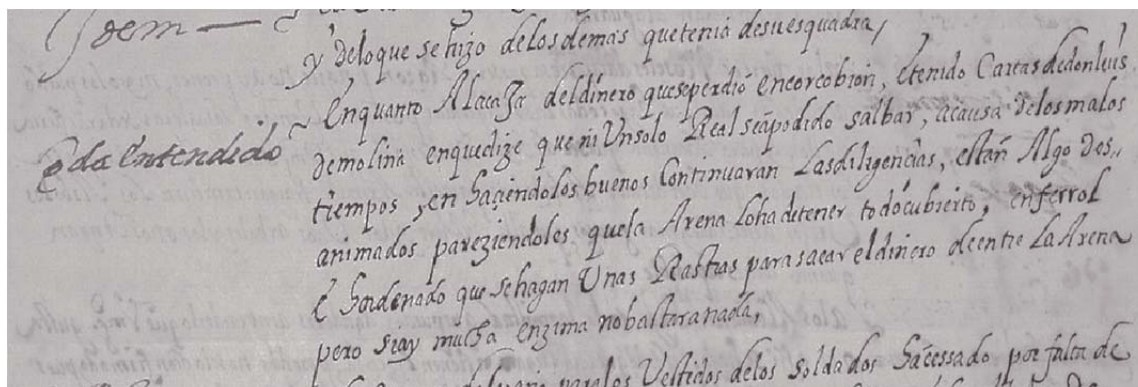 Idem
y deloque sehizo delosdemas quetenia desuesquadra,
Enquanto Alacaza deldinero queseperdio encorcobion, Etenido Cartas dedonluis
queda Entendido
demolina enquedize que ni Unsolo Real seapodido salbar, acausa delosmalos
tiempos, y en haziendolos buenos Continuaran Lasdiligencias, estan Algo des..
animados pareziendoles quela Arena loha detener todocubierto, enferrol
E hordenado que sehagan Unas Rastras parasacar eldinero deentre LaArena
pero siay mucha enzima nobaltaranada,
paralos Vestidos delos Soldados hacessado por falta de